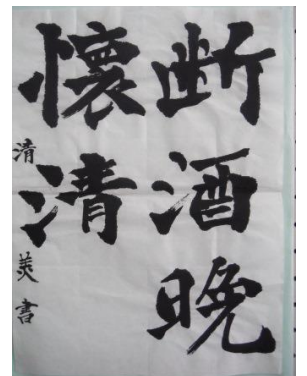 断酒晩
懐清
清美書